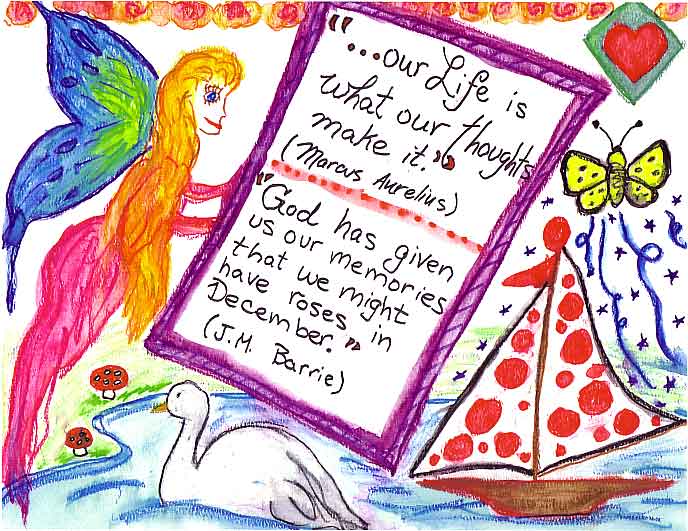 "...our Life is
what our thoughts
make it."
(Marcus Aurelius)
"God has given
us our memories
that we might
have roses in
December."
(J.M. Barrie)